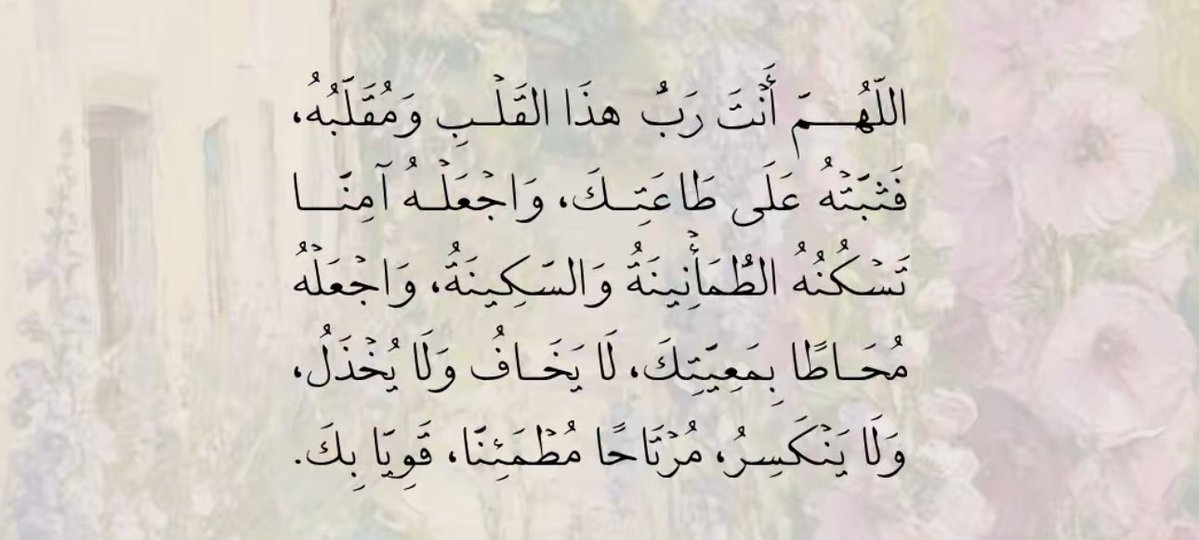 اللّهُـــمَّ أَنْتَ رَبُّ هذَا القَلْـبِ وَمُقَلِّبُهُ،
فَثَبِّتْهُ عَلَى طَاعَتِـكَ، وَاجْعَلْـهُ آمِنًــا
تَسْكُنُهُ الطُّمَأْنِينَةُ وَالسَّكِينَةُ، وَاجْعَلْهُ
مُحَـاطًا بِمَعِيَّتِكَ، لَا يَخَـافُ وَلَا يُخْذَلُ،
وَلَا يَنْكَسِرُ، مُرْتَاحًا مُطْمَئِنًّا، قَوِيًّا بِكَ.